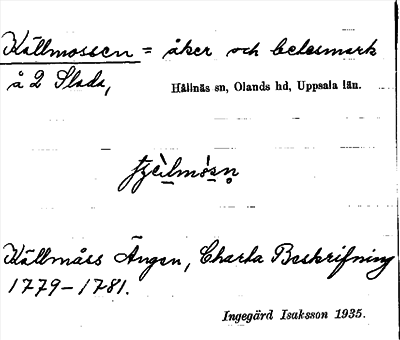 Källmossen = åker och betesmark
å 2 Slada,
Hållnäs sn, Olands hd, Uppsala län.
Källmåss Ängen, Charta Beskrifning
1779-1781.
Ingegärd Isaksson 1935.